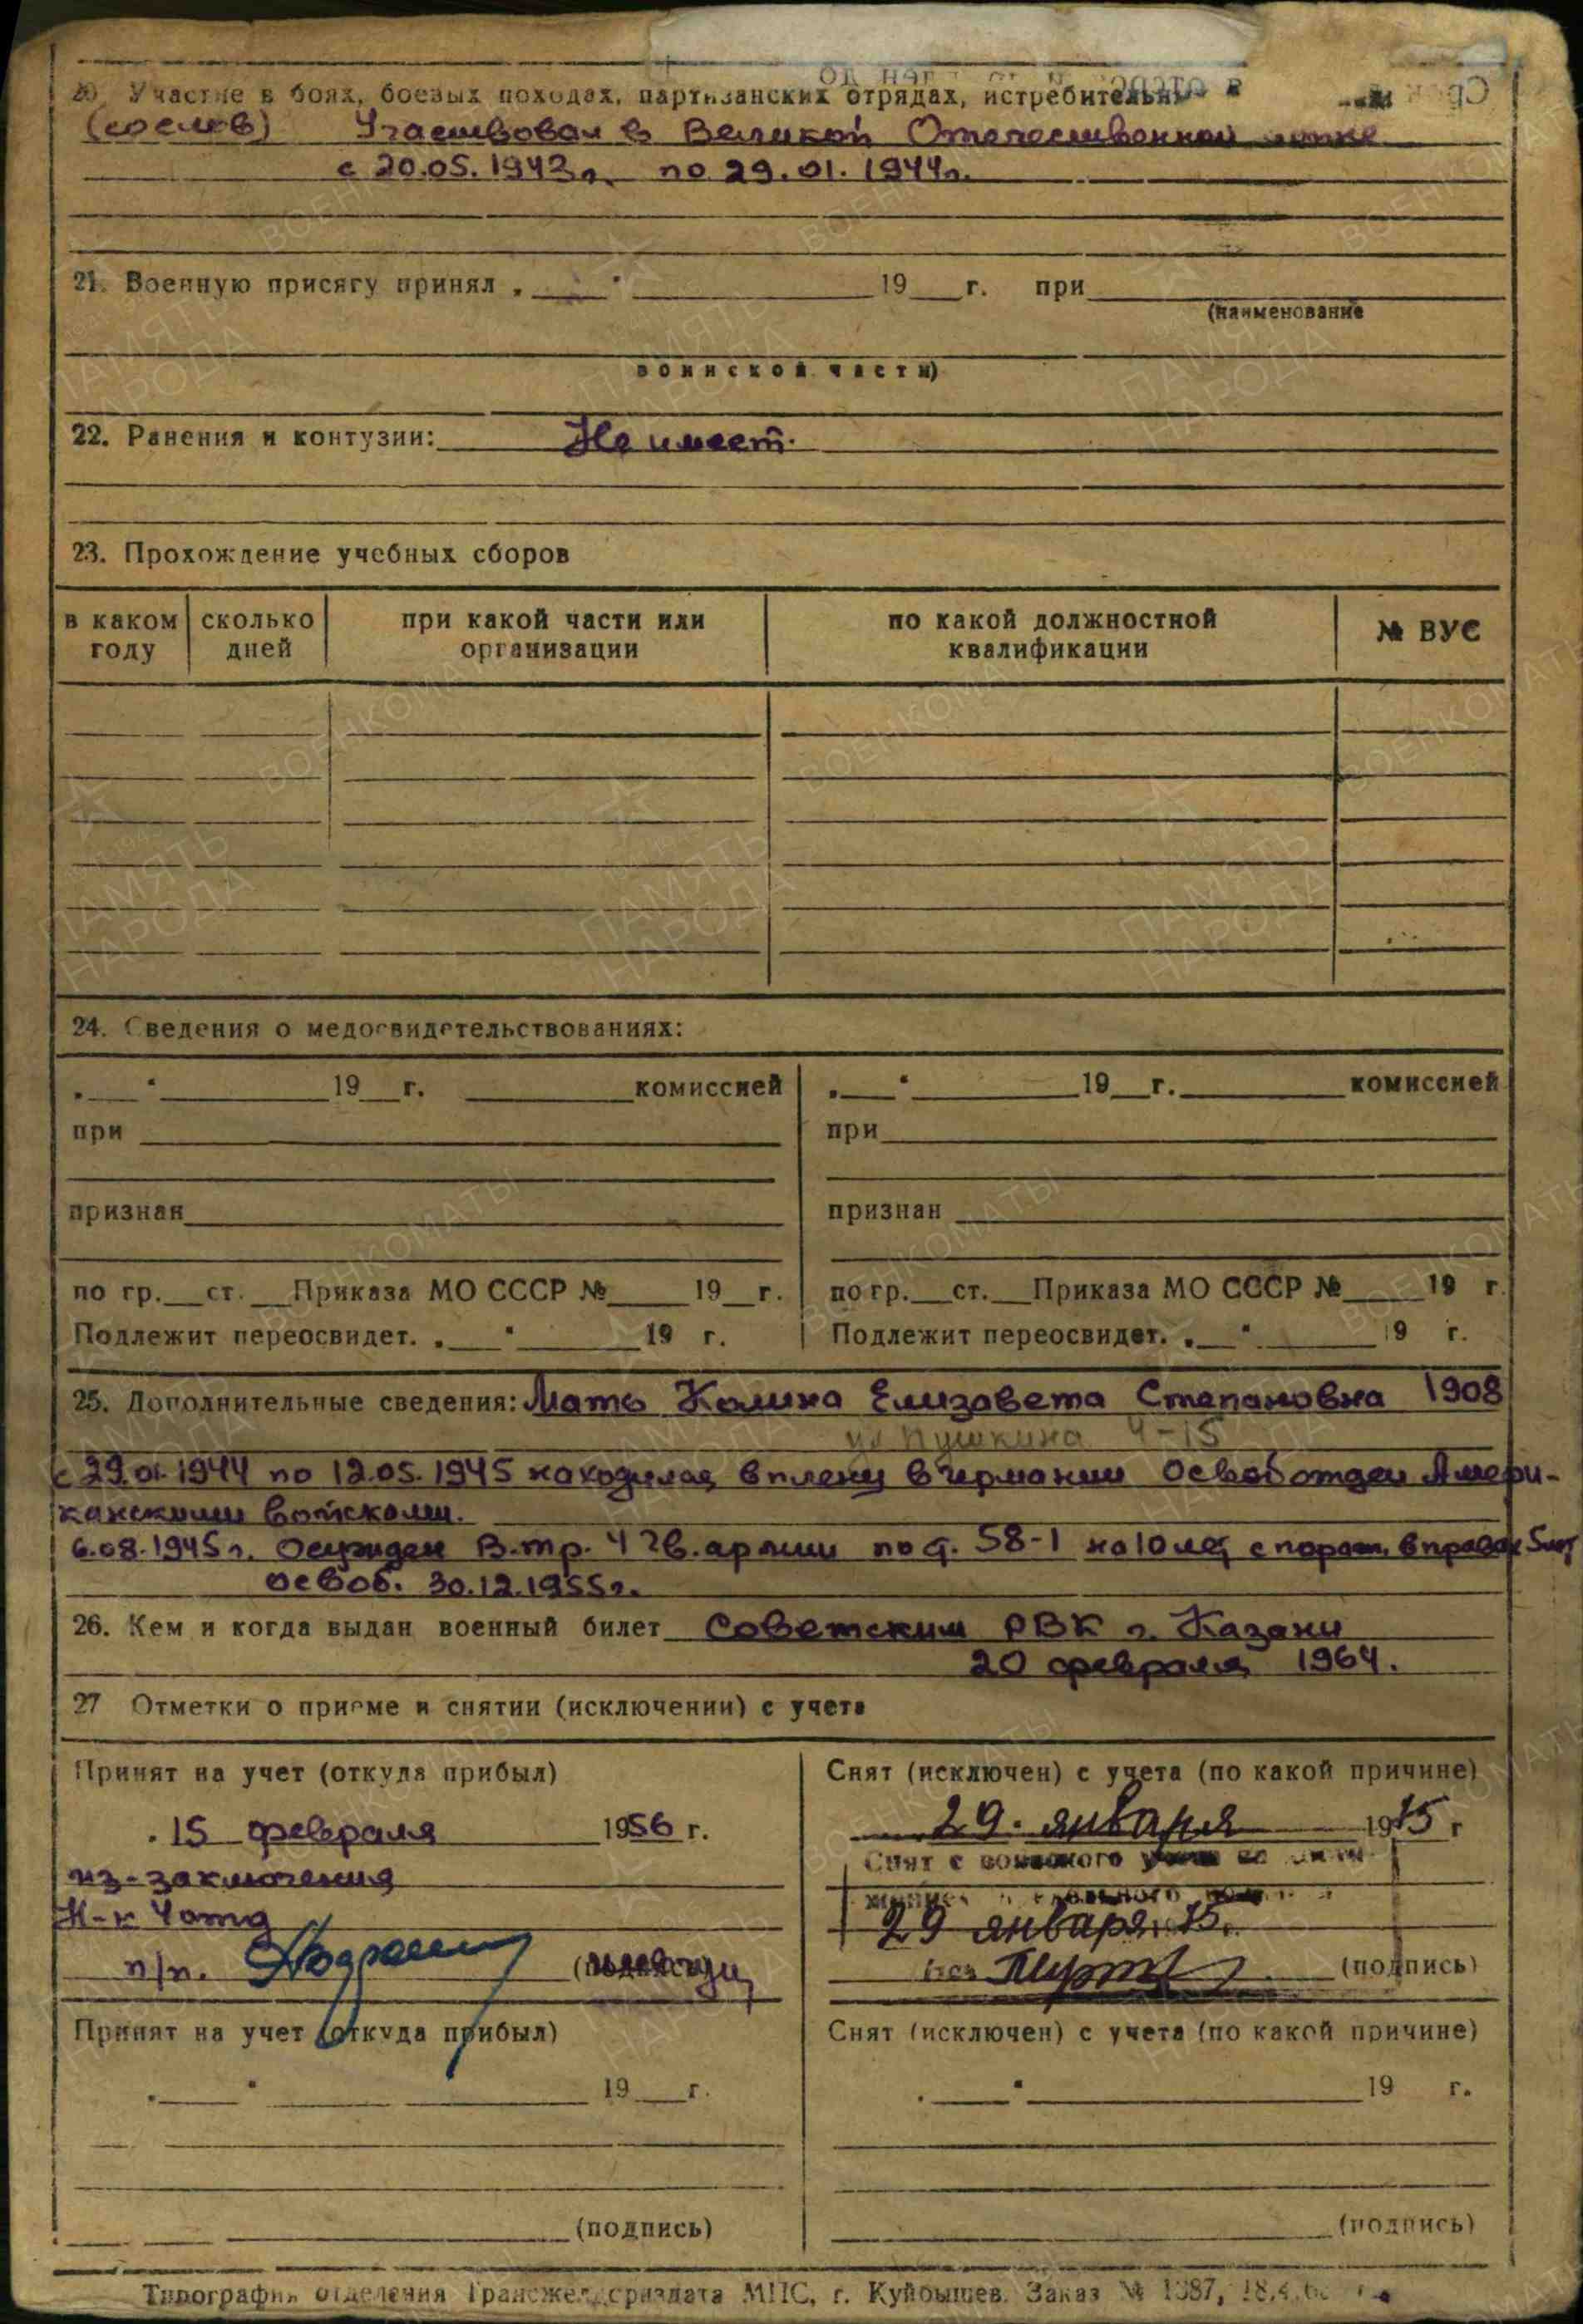 20. Участие в боях, боевых походах, партизанских отрядах, истребительн
Участвовал в Великой Отечественной
с 20.05.1943г. по 29.01.1944г.
21. Военную присягу принял „___“ ___ 19___г. при
(наименование
воинской части)
22. Ранения и контузии: Не имеет.
23. Прохождение учебных сборов
в каком году | сколько дней | при какой части или организации | по какой должностной квалификации | № ВУС
24. Сведения о медосвидетельствованиях:
„___“ ___ 19__г. ___ комиссией | „___“ ___ 19__г. ___ комиссией
при | при
признан | признан
по гр.__ст.__Приказа МО СССР №___19__г. | по гр.__ст.__Приказа МО СССР №___19 г.
Подлежит переосвидет. „___“ ___ 19 г. | Подлежит переосвидет. „___“ ___ 19 г.
25. Дополнительные сведения: Мать Елизавета Степановна 1908
ул Пушкина 4-15
с 29.01.1944 по 12.05.1945 находился в плену в Германии Освобожден Амери-
канскими войсками.
6.08.1945г. Осужден В.тр. 4 гв.армии по ст. 58-1 на 10 лет с пораж. в правах 5 лет
освоб. 30.12.1955г.
26. Кем и когда выдан военный билет Советским РВК г. Казани
20 февраля 1964.
27 Отметки о приеме и снятии (исключении) с учета
Принят на учет (откуда прибыл) | Снят (исключен) с учета (по какой причине)
15 февраля 1956 г. | 29. января 1975 г
из-заключения | Снят с воинского
Н-к 4отд | 29 января 75.
п/п. | (подпись)
Принят на учет (откуда прибыл) | Снят (исключен) с учета (по какой причине)
„___“ ___ 19___г. | „___“ ___ 19 г.
(подпись) | (подпись)
Типография отделения Трансжелдориздата МПС, г. Куйбышев. Заказ № 1387, 18.4
ПАМЯТЬ НАРОДА
ВОЕНКОМАТЫ